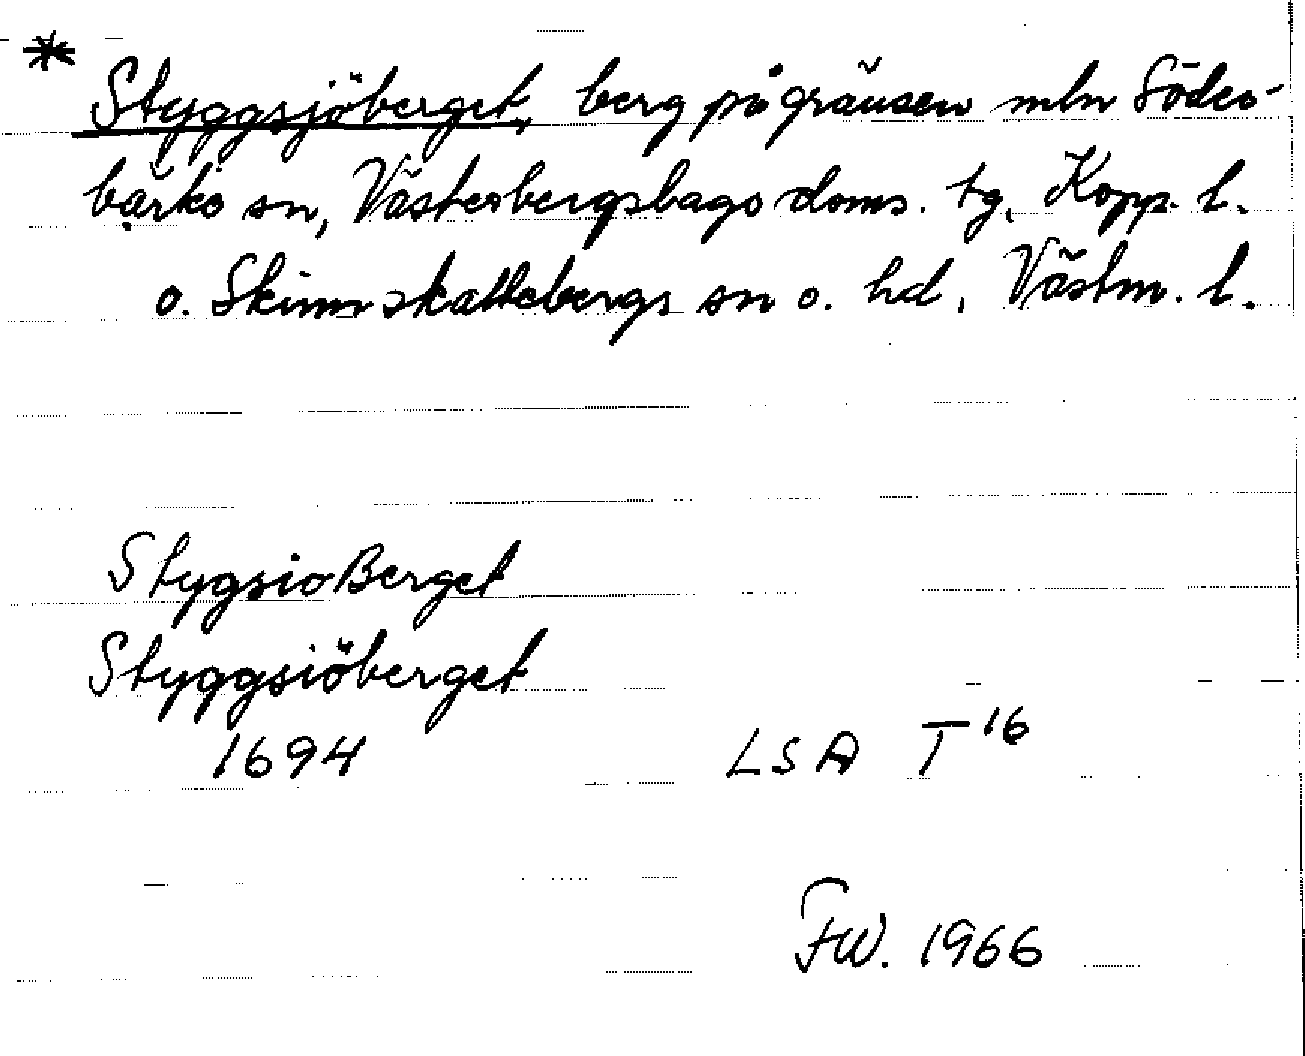 * Styggsjöberget, berg på gränsen mln Söder-
bärke sn, Västerbergslags doms. tg, Kopp. l.
o. Skinnskattebergs sn o. hd, Västm. l.
StygsioBerget
Styggsiöberget
1694 LSA T 16
FW. 1966